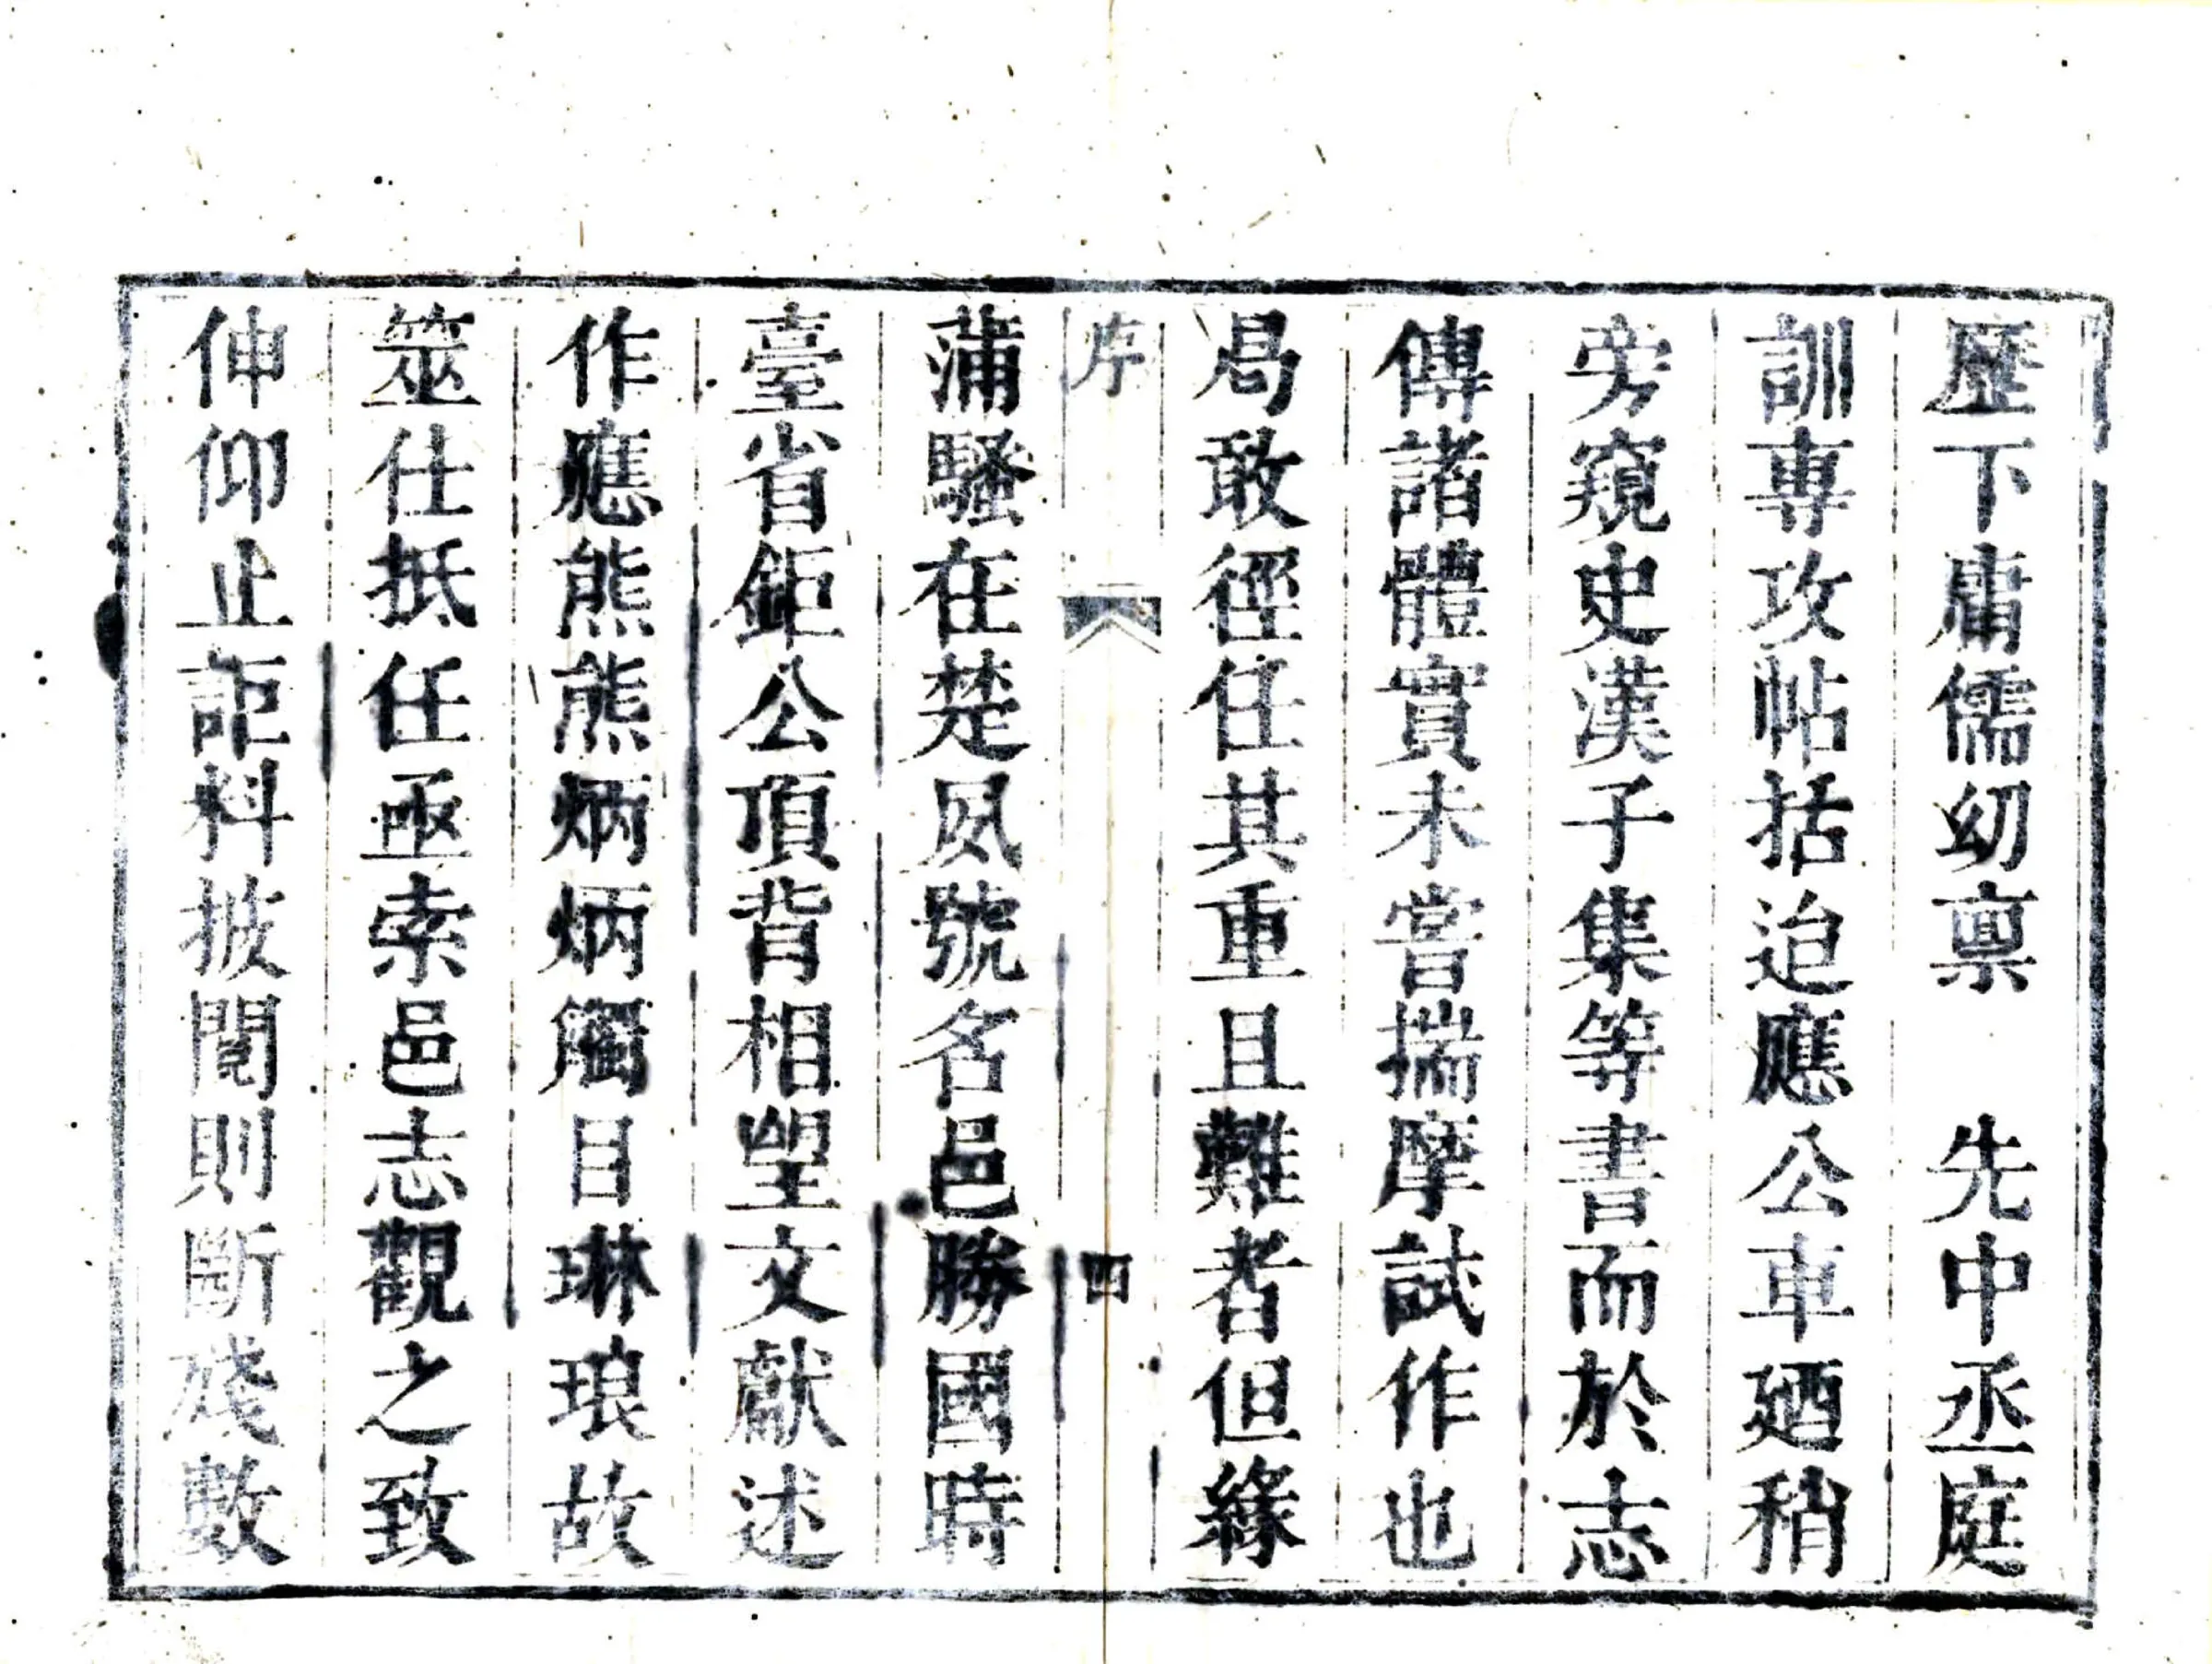 歷下庸儒幼禀　先中丞庭
訓專攻帖括迨應公車廼稍
旁窺史漢子集等書而於志
傳諸體實未嘗揣摩試作也
局敢徑任其重且難者但緣
序　四
蒲騷在楚夙號名邑勝國時
臺省鉅公頂背相望文獻述
作應熊熊炳炳觸目琳琅故
筮仕抵任亟索邑志觀之致
伸仰止詎料披閱則斷殘數